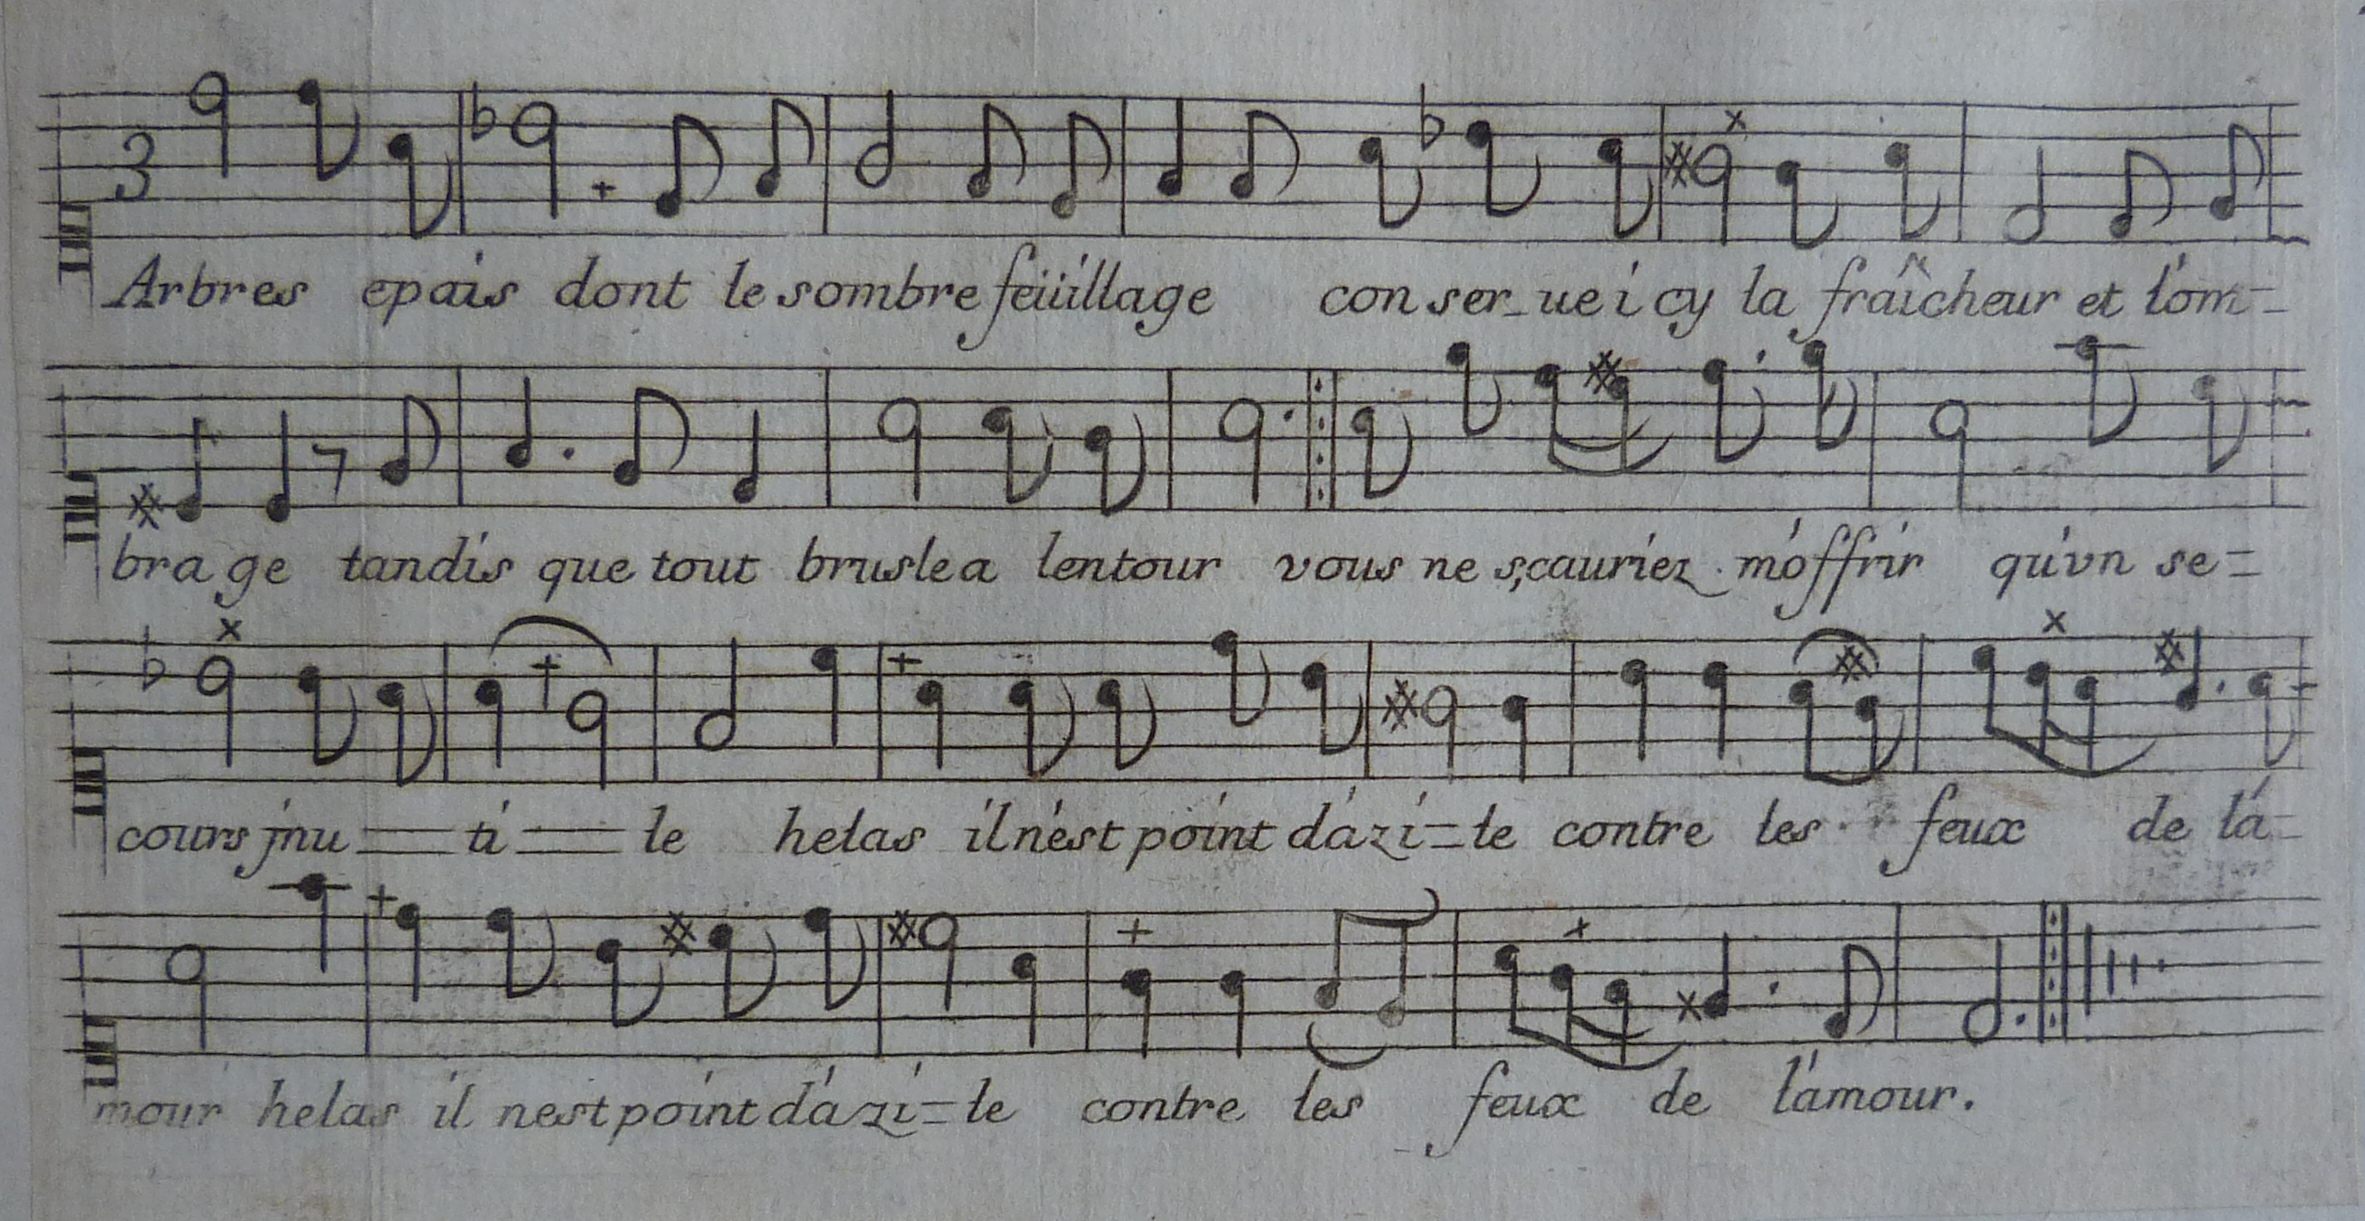 3
Arbres epais dont le sombre feüillage con ser_ue i cy la fraîcheur et l'om=
bra ge tandis que tout brusle a lentour vous ne sçauriez m'offrir qu'vn se=
cours jnu=ti=le helas il n'est point d'azi=le contre les feux de l'a=
mour helas il nest point d'azi=le contre les feux de l'amour.